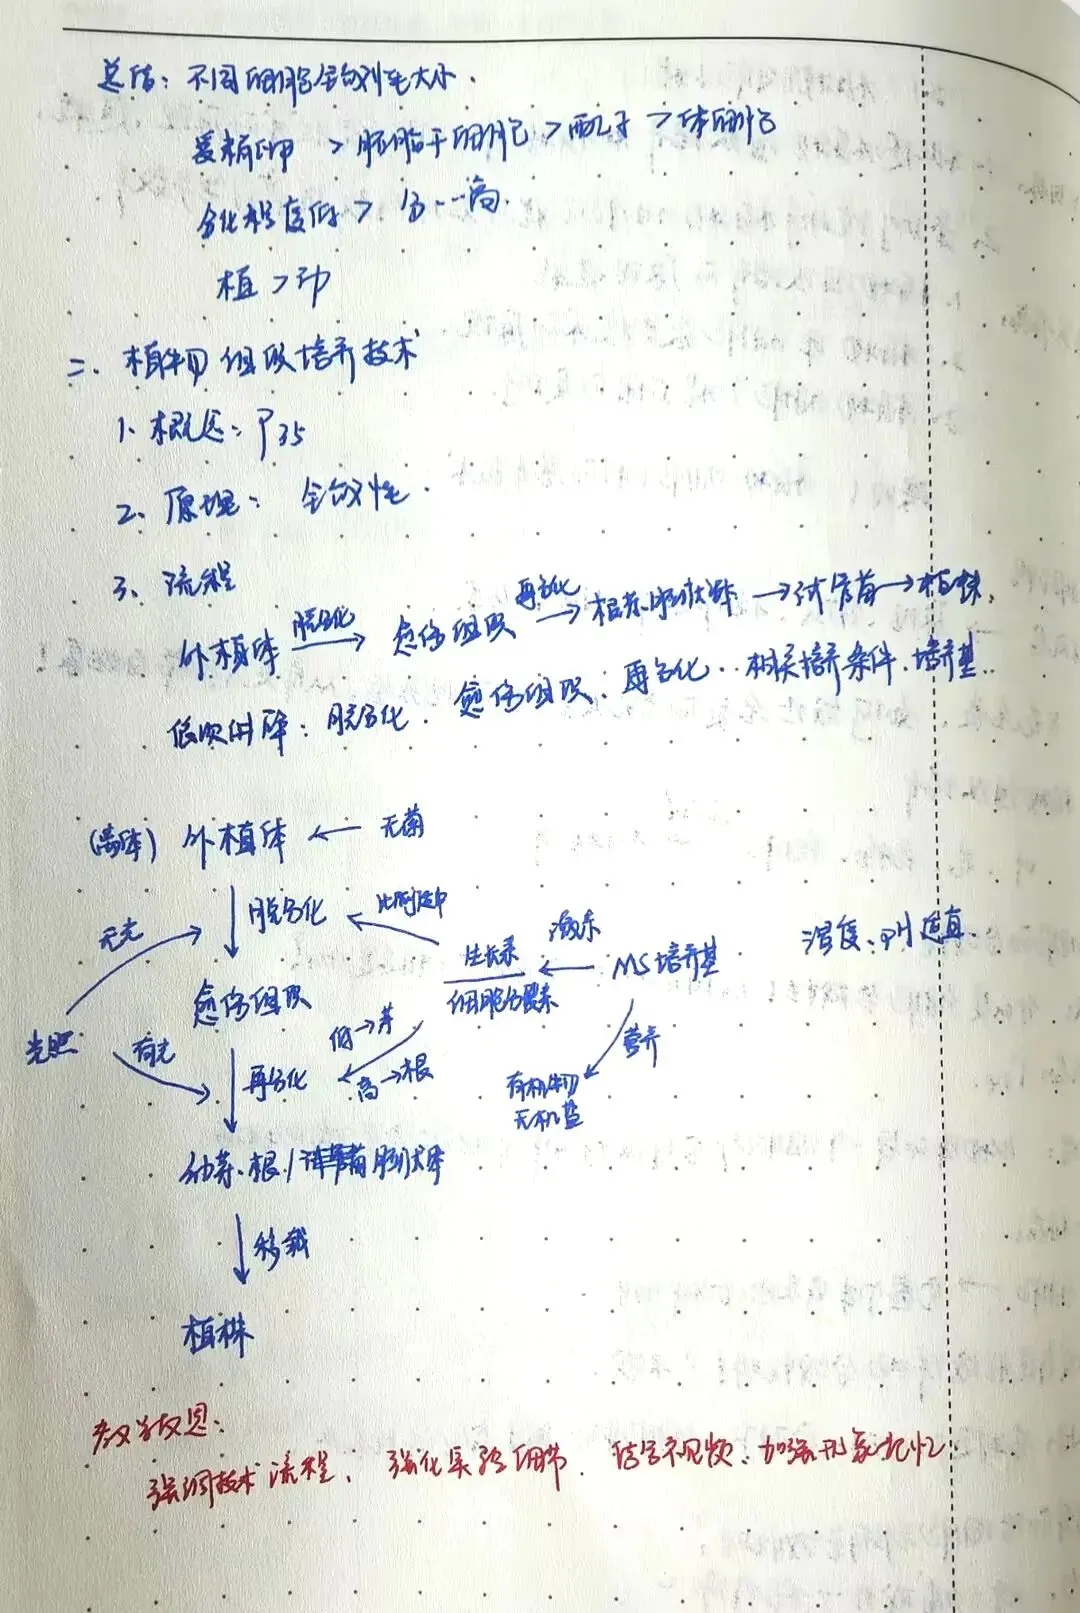 总结：不同细胞全能性大小.
受精卵 > 胚胎干细胞 > 配子 > 体细胞
分化程度低 > 分…高.
植 > 动
二、植物组织培养技术
1、概念：P35
2、原理：全能性.
3、流程
外植体 脱分化→ 愈伤组织 再分化→ 胚状体 → 试管苗 → 植株.
依次解释：脱分化. 愈伤组织. 再分化. 相关培养条件. 培养基.
(离体) 外植体 ← 无菌
脱分化 比例适中
无光
生长素 激素 MS培养基 温度、pH适宜.
细胞分裂素
愈伤组织
光照 有光 再分化 低→芽 高→根 营养
有机物
无机盐
幼芽、根/胚状体
移栽
植株
教学反思：
强调技术流程、强化实验细节. 结合视频. 加强形象记忆